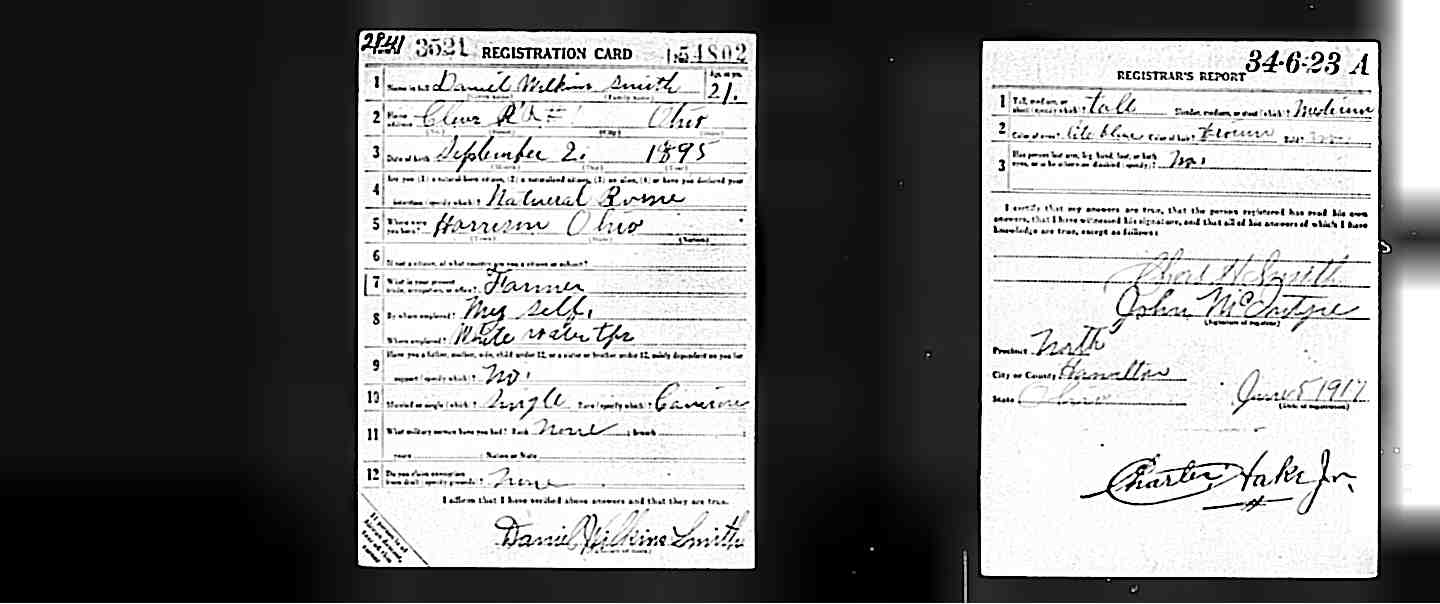 2841 3521 REGISTRATION CARD 54802
1 Name in full Daniel Wilkins Smith Age in yrs. 21.
(Given name) (Family name)
2 Home address Cleves R.D. # 1 Ohio
(No.) (Street) (City) (State)
3 Date of birth September 2. 1895
(Month) (Day) (Year)
4 Are you (1) a natural-born citizen, (2) a naturalized citizen, (3) an alien, (4) or have you declared your
intention (specify which)? Natural Borne
5 Where were you born? Harrison Ohio
(Town) (State) (Nation)
6 If not a citizen, of what country are you a citizen or subject?
7 What is your present trade, occupation, or office? Farmer
8 By whom employed? My self.
Where employed? White water tps
9 Have you a father, mother, wife, child under 12, or a sister or brother under 12, solely dependent on you for
support (specify which)? No.
10 Married or single (which)? Single Race (specify which)?
11 What military service have you had? Rank None ; branch ;
years ; Nation or State
12 Do you claim exemption from draft (specify grounds)? None
I affirm that I have verified above answers and that they are true.
Daniel Wilkins Smith
34-6-23 A
REGISTRAR'S REPORT
1 Tall, medium, or short (specify which)? tall Slender, medium, or stout (which)? Medium
2 Color of eyes? lite blue Color of hair? Brown Bald?
3 Has person lost arm, leg, hand, foot, or both eyes, or is he otherwise disabled (specify)? No.
I certify that my answers are true, that the person registered has read his own
answers, that I have witnessed his signature, and that all of his answers of which I have
knowledge are true, except as follows:
H Smith
John McIntyre
(Signature of registrar)
Precinct North
City or County Hamilton
State Ohio June 5 1917
(Date of registration)
Charter Hake Jr.